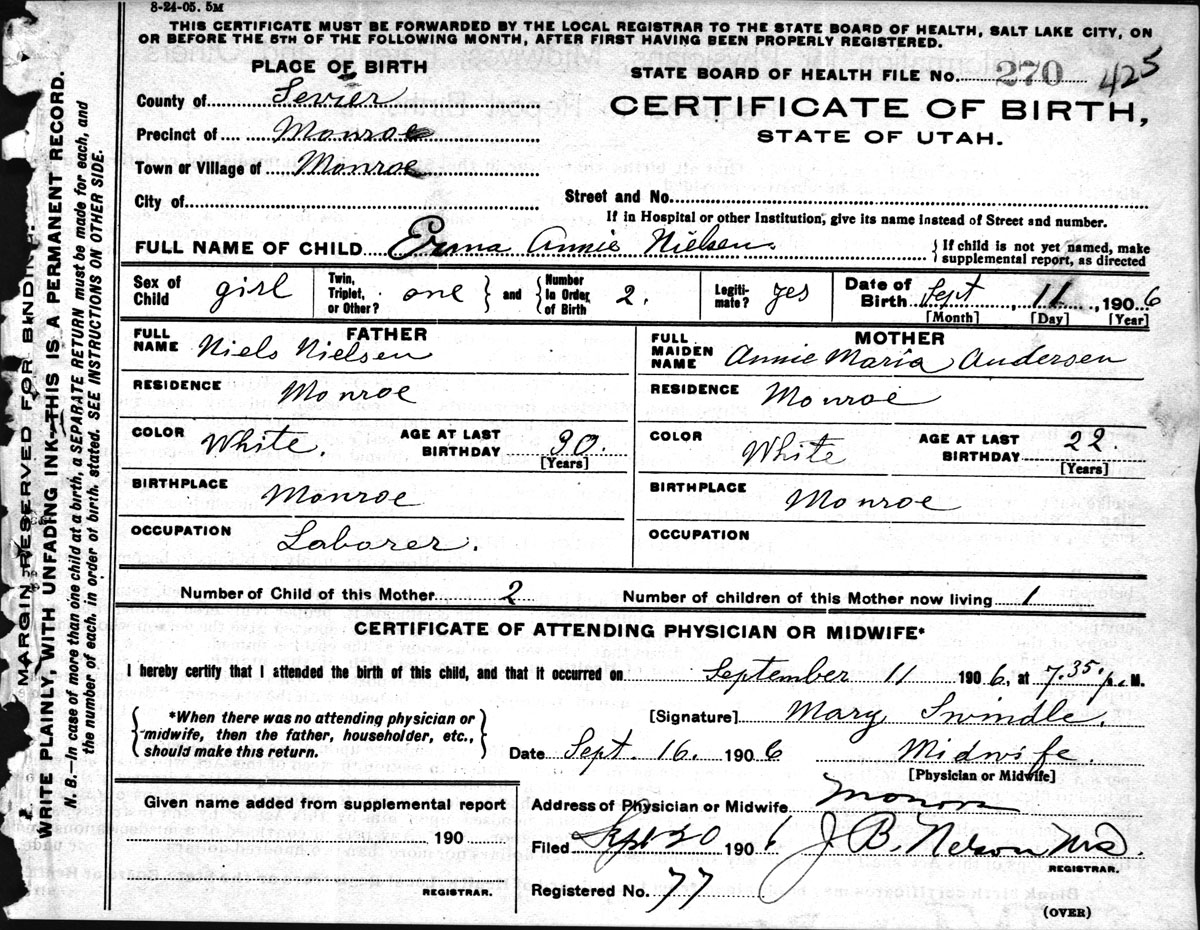 8-24-05. 5M
THIS CERTIFICATE MUST BE FORWARDED BY THE LOCAL REGISTRAR TO THE STATE BOARD OF HEALTH, SALT LAKE CITY, ON
OR BEFORE THE 5TH OF THE FOLLOWING MONTH, AFTER FIRST HAVING BEEN PROPERLY REGISTERED.
MARGIN RESERVED FOR BINDING.
WRITE PLAINLY, WITH UNFADING INK—THIS IS A PERMANENT RECORD.
N. B.—In case of more than one child at a birth, a SEPARATE RETURN must be made for each, and
the number of each, in order of birth, stated. SEE INSTRUCTIONS ON OTHER SIDE.
PLACE OF BIRTH
County of Sevier
Precinct of Monroe
Town or Village of Monroe
City of
STATE BOARD OF HEALTH FILE No. 270 425
CERTIFICATE OF BIRTH,
STATE OF UTAH.
Street and No.
If in Hospital or other Institution, give its name instead of Street and number.
FULL NAME OF CHILD Erma Annie Nielsen
{ If child is not yet named, make
supplemental report, as directed
Sex of Child girl Twin, Triplet, or Other? one } and { Number In Order of Birth 2. Legiti- mate? yes Date of Birth Sept, 11, 1906
[Month] [Day] [Year]
FATHER
FULL NAME Niels Nielsen
RESIDENCE Monroe
COLOR White. AGE AT LAST BIRTHDAY 30. [Years]
BIRTHPLACE Monroe
OCCUPATION Laborer.
MOTHER
FULL MAIDEN NAME Annie Maria Andersen
RESIDENCE Monroe
COLOR White AGE AT LAST BIRTHDAY 22. [Years]
BIRTHPLACE Monroe
OCCUPATION
Number of Child of this Mother 2 Number of children of this Mother now living 1
CERTIFICATE OF ATTENDING PHYSICIAN OR MIDWIFE*
I hereby certify that I attended the birth of this child, and that it occurred on September 11 1906, at 7.35. p. M.
{ *When there was no attending physician or
midwife, then the father, householder, etc.,
should make this return. }
[Signature] Mary Swindle.
Date Sept. 16. 1906 Midwife.
[Physician or Midwife]
Given name added from supplemental report
190
REGISTRAR.
Address of Physician or Midwife
Filed Sept 20 1906 J. B. Nelson
REGISTRAR.
Registered No. 77
(OVER)